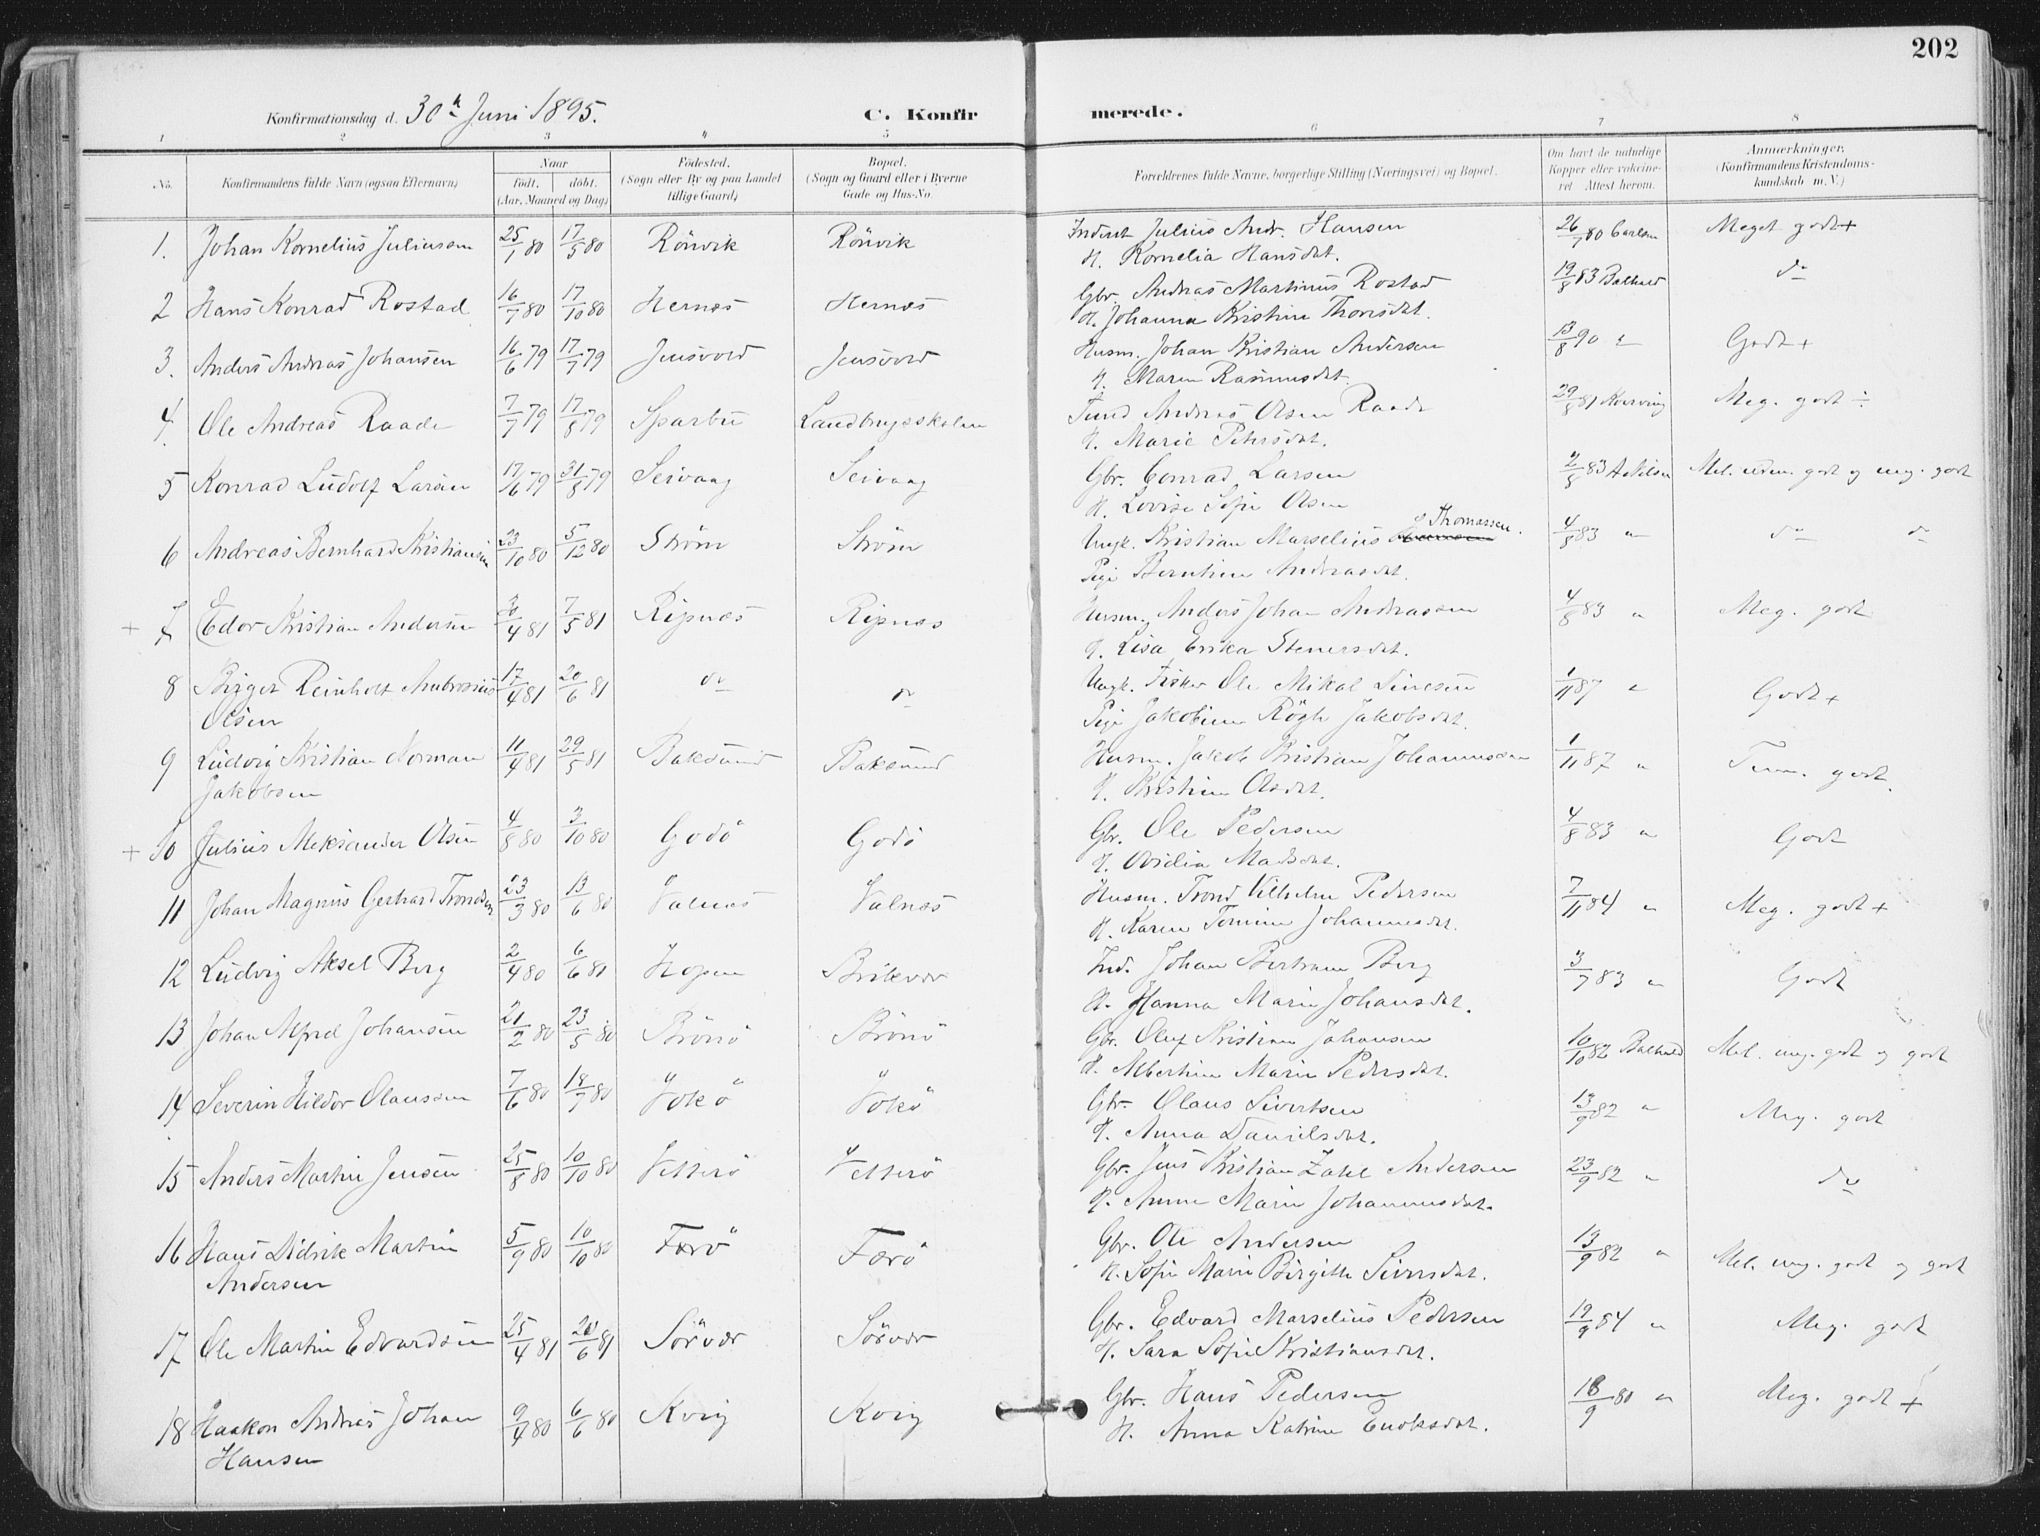 202
Konfirmationsdag d. 30te Juni 1895. C. Konfirmerede.
1 2 3 4 5 6 7 8
No. Konfirmandens fulde Navn (ogsaa Efternavn) Naar født. døbt. (Aar, Maaned og Dag) Fødested. (Sogn eller By og paa Landet tillige Gaard) Bopæl. (Sogn og Gaard eller i Byerne Gade og Hus-No. Forældrenes fulde Navne, borgerlige Stilling (Næringsvei) og Bopæl. Om havt de naturlige Kopper eller vakcineret. Attest herom. Anmærkninger. (Konfirmandens Kristendomskundskab m. V.)
1. Johan Kornelius Juliussen 25/1 80 17/5 80 Rönvik Rönvik Inderst Julius Andr. Hansen 26/7 80 Carlsen Meget godt +
H. Kornelia Hansdat.
2 Hans Konrad Rostad 16/7 80 17/10 80 Hernæs Hernæs Gbr. Andreas Martinus Rostad 19/8 83 Balhald do
H. Johanna Kristine Thorisdat.
3. Anders Andreas Johansen 16/6 79 17/7 79 Jensvold Jensvold Husm. Johan Kristian Andersen 13/8 90 " Godt +
H. Maren Rasmusdat.
4. Ole Andreas Raade 7/7 79 17/8 79 Sparbu Landbrugsskolen Andreas Olsen Raade 29/8 81 Meg. godt ÷
H. Marie Petersdat.
5 Konrad Ludolf Larsen 17/6 79 31/8 79 Seivaag Seivaag Gbr. Conrad Larsen 2/8 83 A Nilsen Mel. godt og meg. godt
H. Lovise Sofie Olsen
6 Andreas Bernhard Kristiansen 23/10 80 5/12 80 Ström Ström Ungk. Kristian Marselius Thomassen. 4/8 83 " do do
Pige Berntine Andreasdat.
+ 7 Edor Kristian Andersen 30/4 81 7/5 81 Ripnæs Ripnæs Husm. Anders Johan Andreassen 4/8 83 " Meg. godt
H. Lisa Erika Stenersdat.
8 Birger Reinholt Ambrosius 17/4 81 20/6 81 do do Ungk. Fisker Ole Mikal 1/11 87 " Godt +
Olsen Pige Jakobine Rögh Jakobsdat.
9 Ludvig Kristian Norman 11/4 81 29/5 81 Baksund Baksund Husm. Jakob Kristian Johannessen 1/11 87 " Tem. godt.
Jakobsen H. Kristine Olsdat.
+ 10 Julius Aleksander Olsen 4/8 80 3/10 80 Godö Godö Gbr. Ole Pedersen 4/8 83 " Godt
H. Ovidia Madsdat.
11 Johan Magnus Gerhard Trondsen 23/3 80 13/6 80 Valnæs Valnæs Husm. Trond Vilhelm Pedersen 7/11 84 " Meg. godt +
H. Karen Tomine Johannesdat.
12 Ludvig Aksel Berg 2/4 80 6/6 80 Hopen Brikvær Ind. Johan Bertram Berg 3/7 83 " Godt
H. Hanna Marie Johansdat.
13 Johan Alfred Johansen 21/2 80 23/5 80 Brönö Brönö Gbr. Oluf Kristian Johansen 10/10 82 Balhald Mel. meg. godt og godt
H. Albertine Marie Pedersdat.
14 Severin Hildor Olaussen 7/6 80 18/7 80 Vokö Vokö Gbr. Olaus Sivertsen 13/9 82 " Meg. godt
H. Anna Danielsdat.
15 Anders Martin Jensen 25/8 80 10/10 80 Vetterö Vetterö Gbr. Jens Kristian Zahl Andersen 23/9 82 " do
H. Anne Marie Johannesdat.
16 Hans Didrik Martin 5/9 80 10/10 80 Færö Færö Gbr. Ole Andersen 13/9 82 " Mel. meg. godt og godt
Andersen H. Sofie Marie Birgitte Siversdat.
17 Ole Martin Edvardsen 25/4 81 20/6 81 Sörvær Sörvær Gbr. Edvard Marselius Pedersen 12/9 84 " Meg. godt
H. Sara Sofie Kristiansdat.
18 Haakon Andreas Johan 9/4 80 6/6 80 Kvig Kvig Gbr. Hans Pedersen 18/9 80 " Meg. godt +
Hansen H. Anna Katrine Enoksdat.